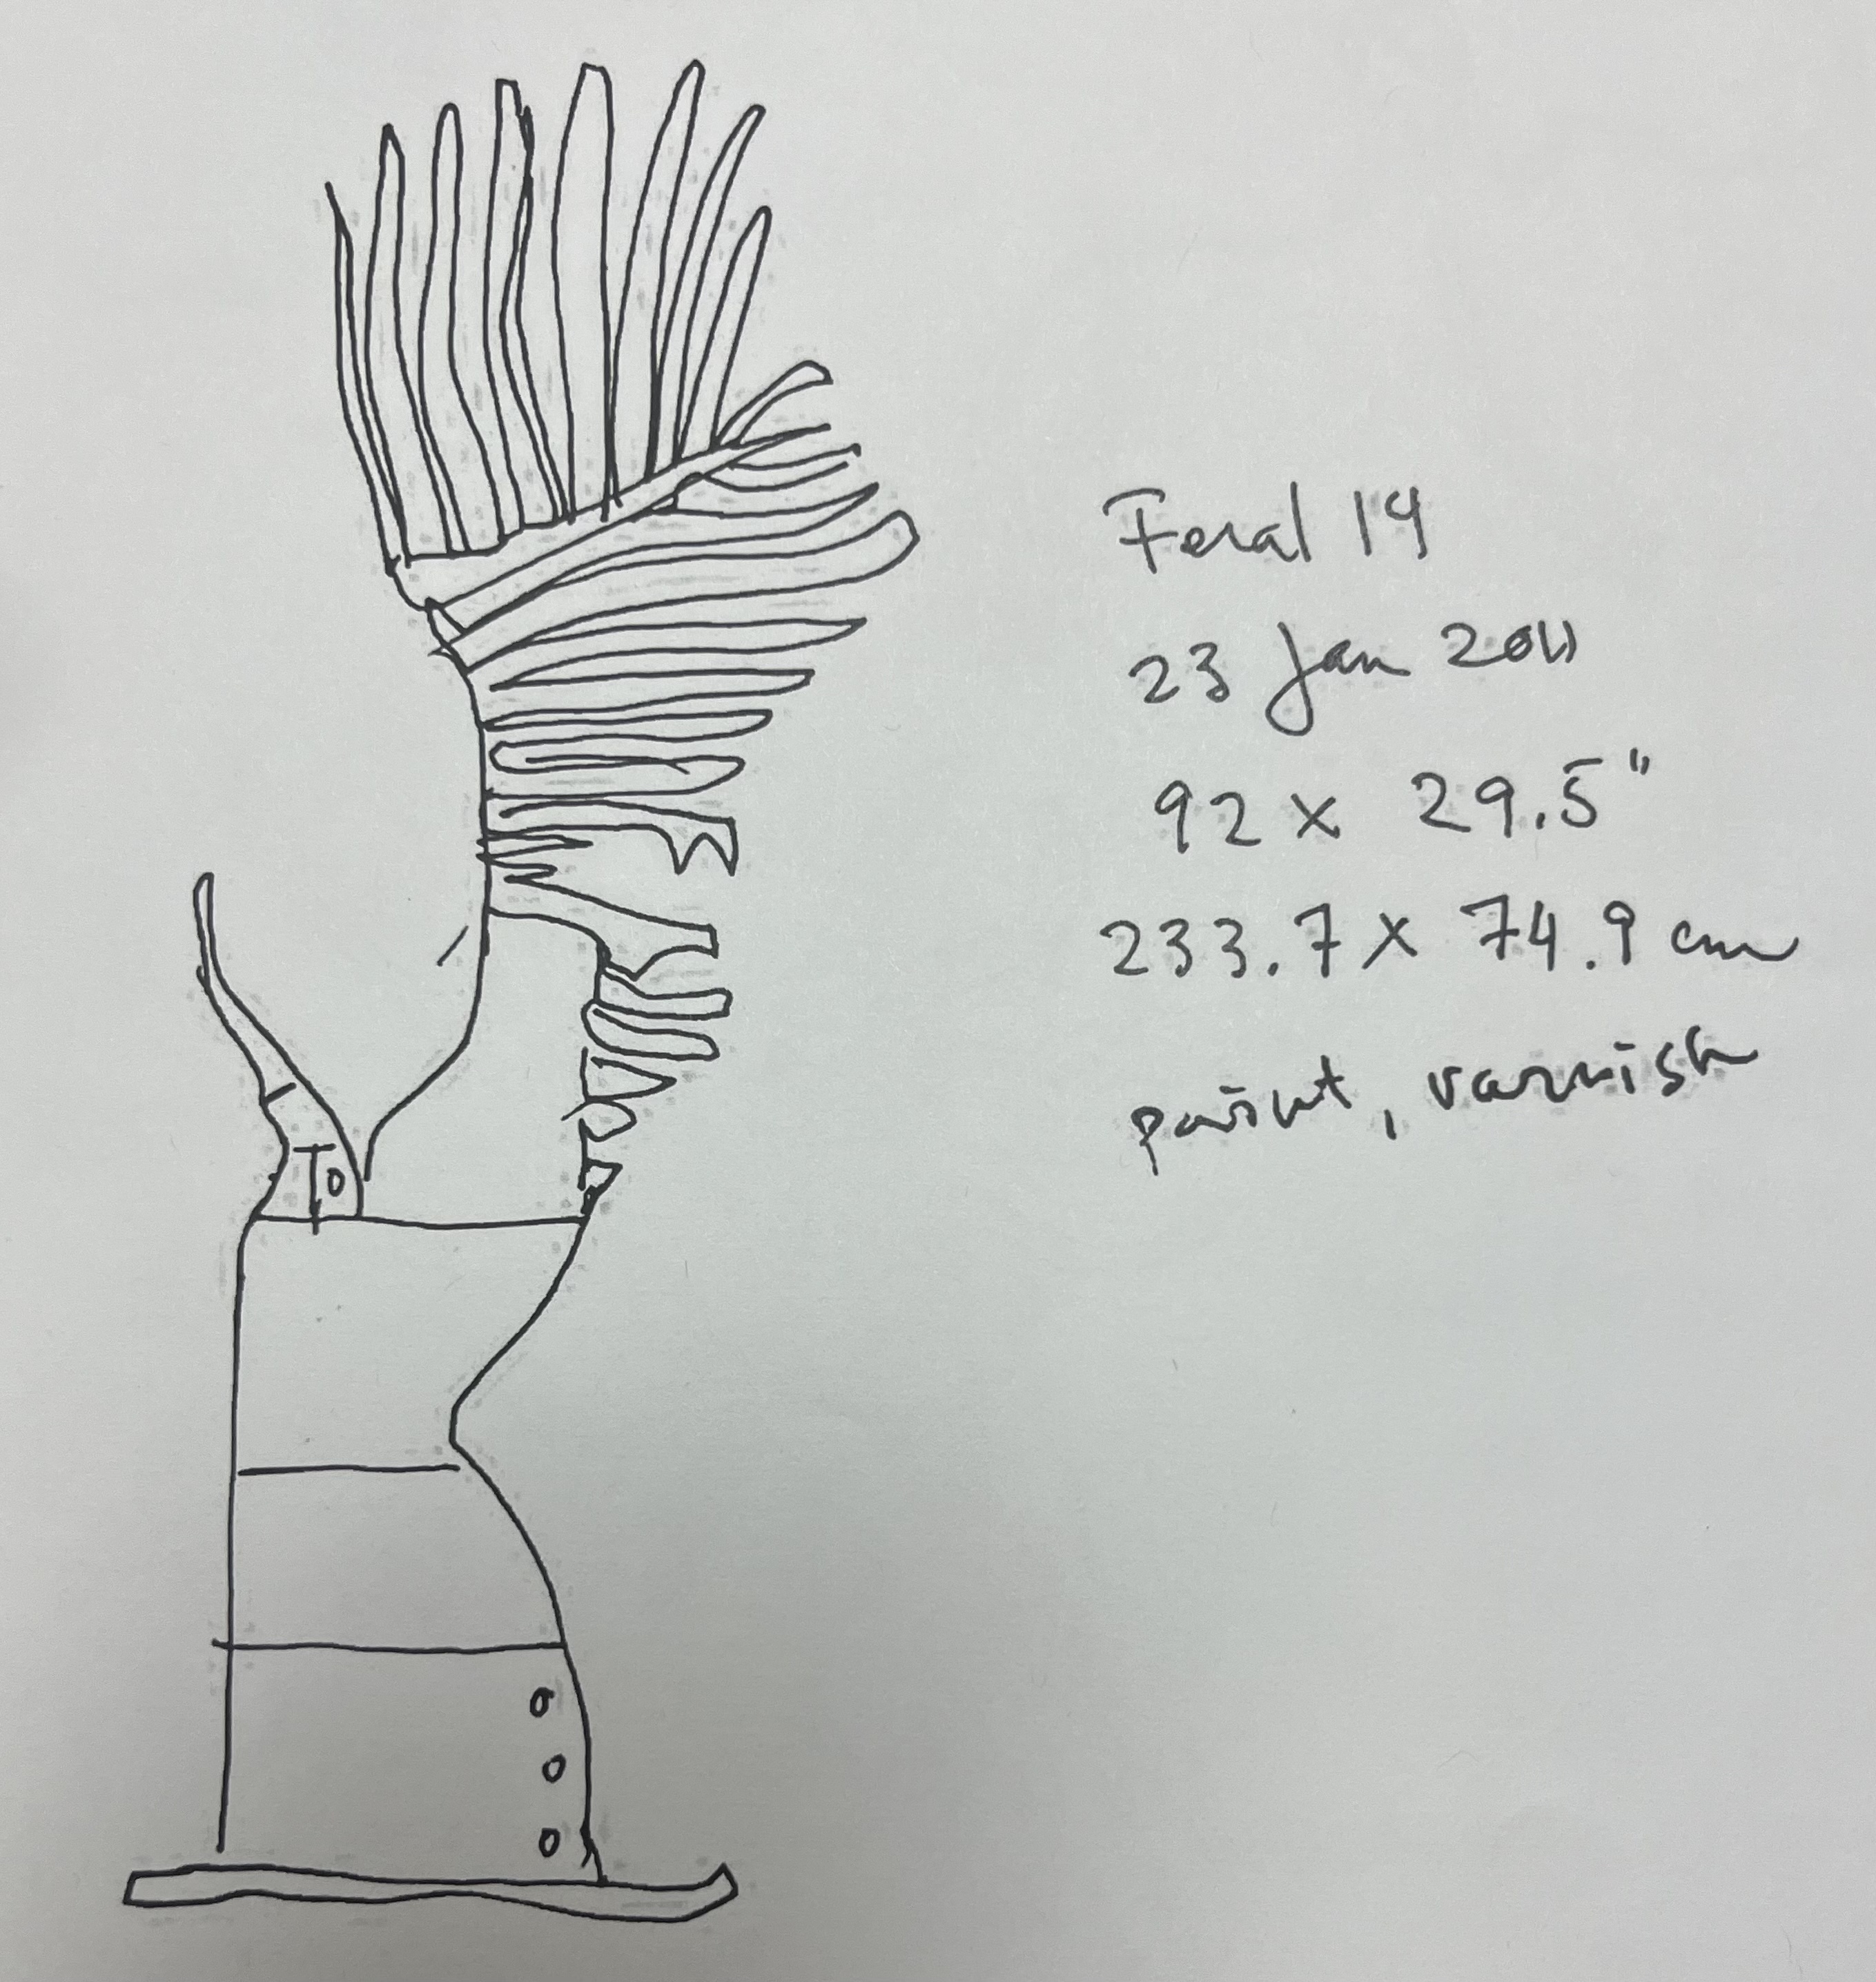 Feral 14
23 Jan 2011
92 x 29.5"
233.7 x 74.9 cm
paint, varnish